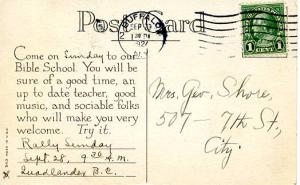 Post Card
BUFFALO
SEP
1
CENT
1
Come on Sunday to our
Bible School. You will be
sure of a good time, an
up to date teacher, good
music, and sociable folks
who will make you very
welcome. Try it.
Rally Sunday
Sept. 28, 9 30 A.M.
Quadlander B.C.
Mrs. Geo. Shore,
507 - 7th St.,
City.